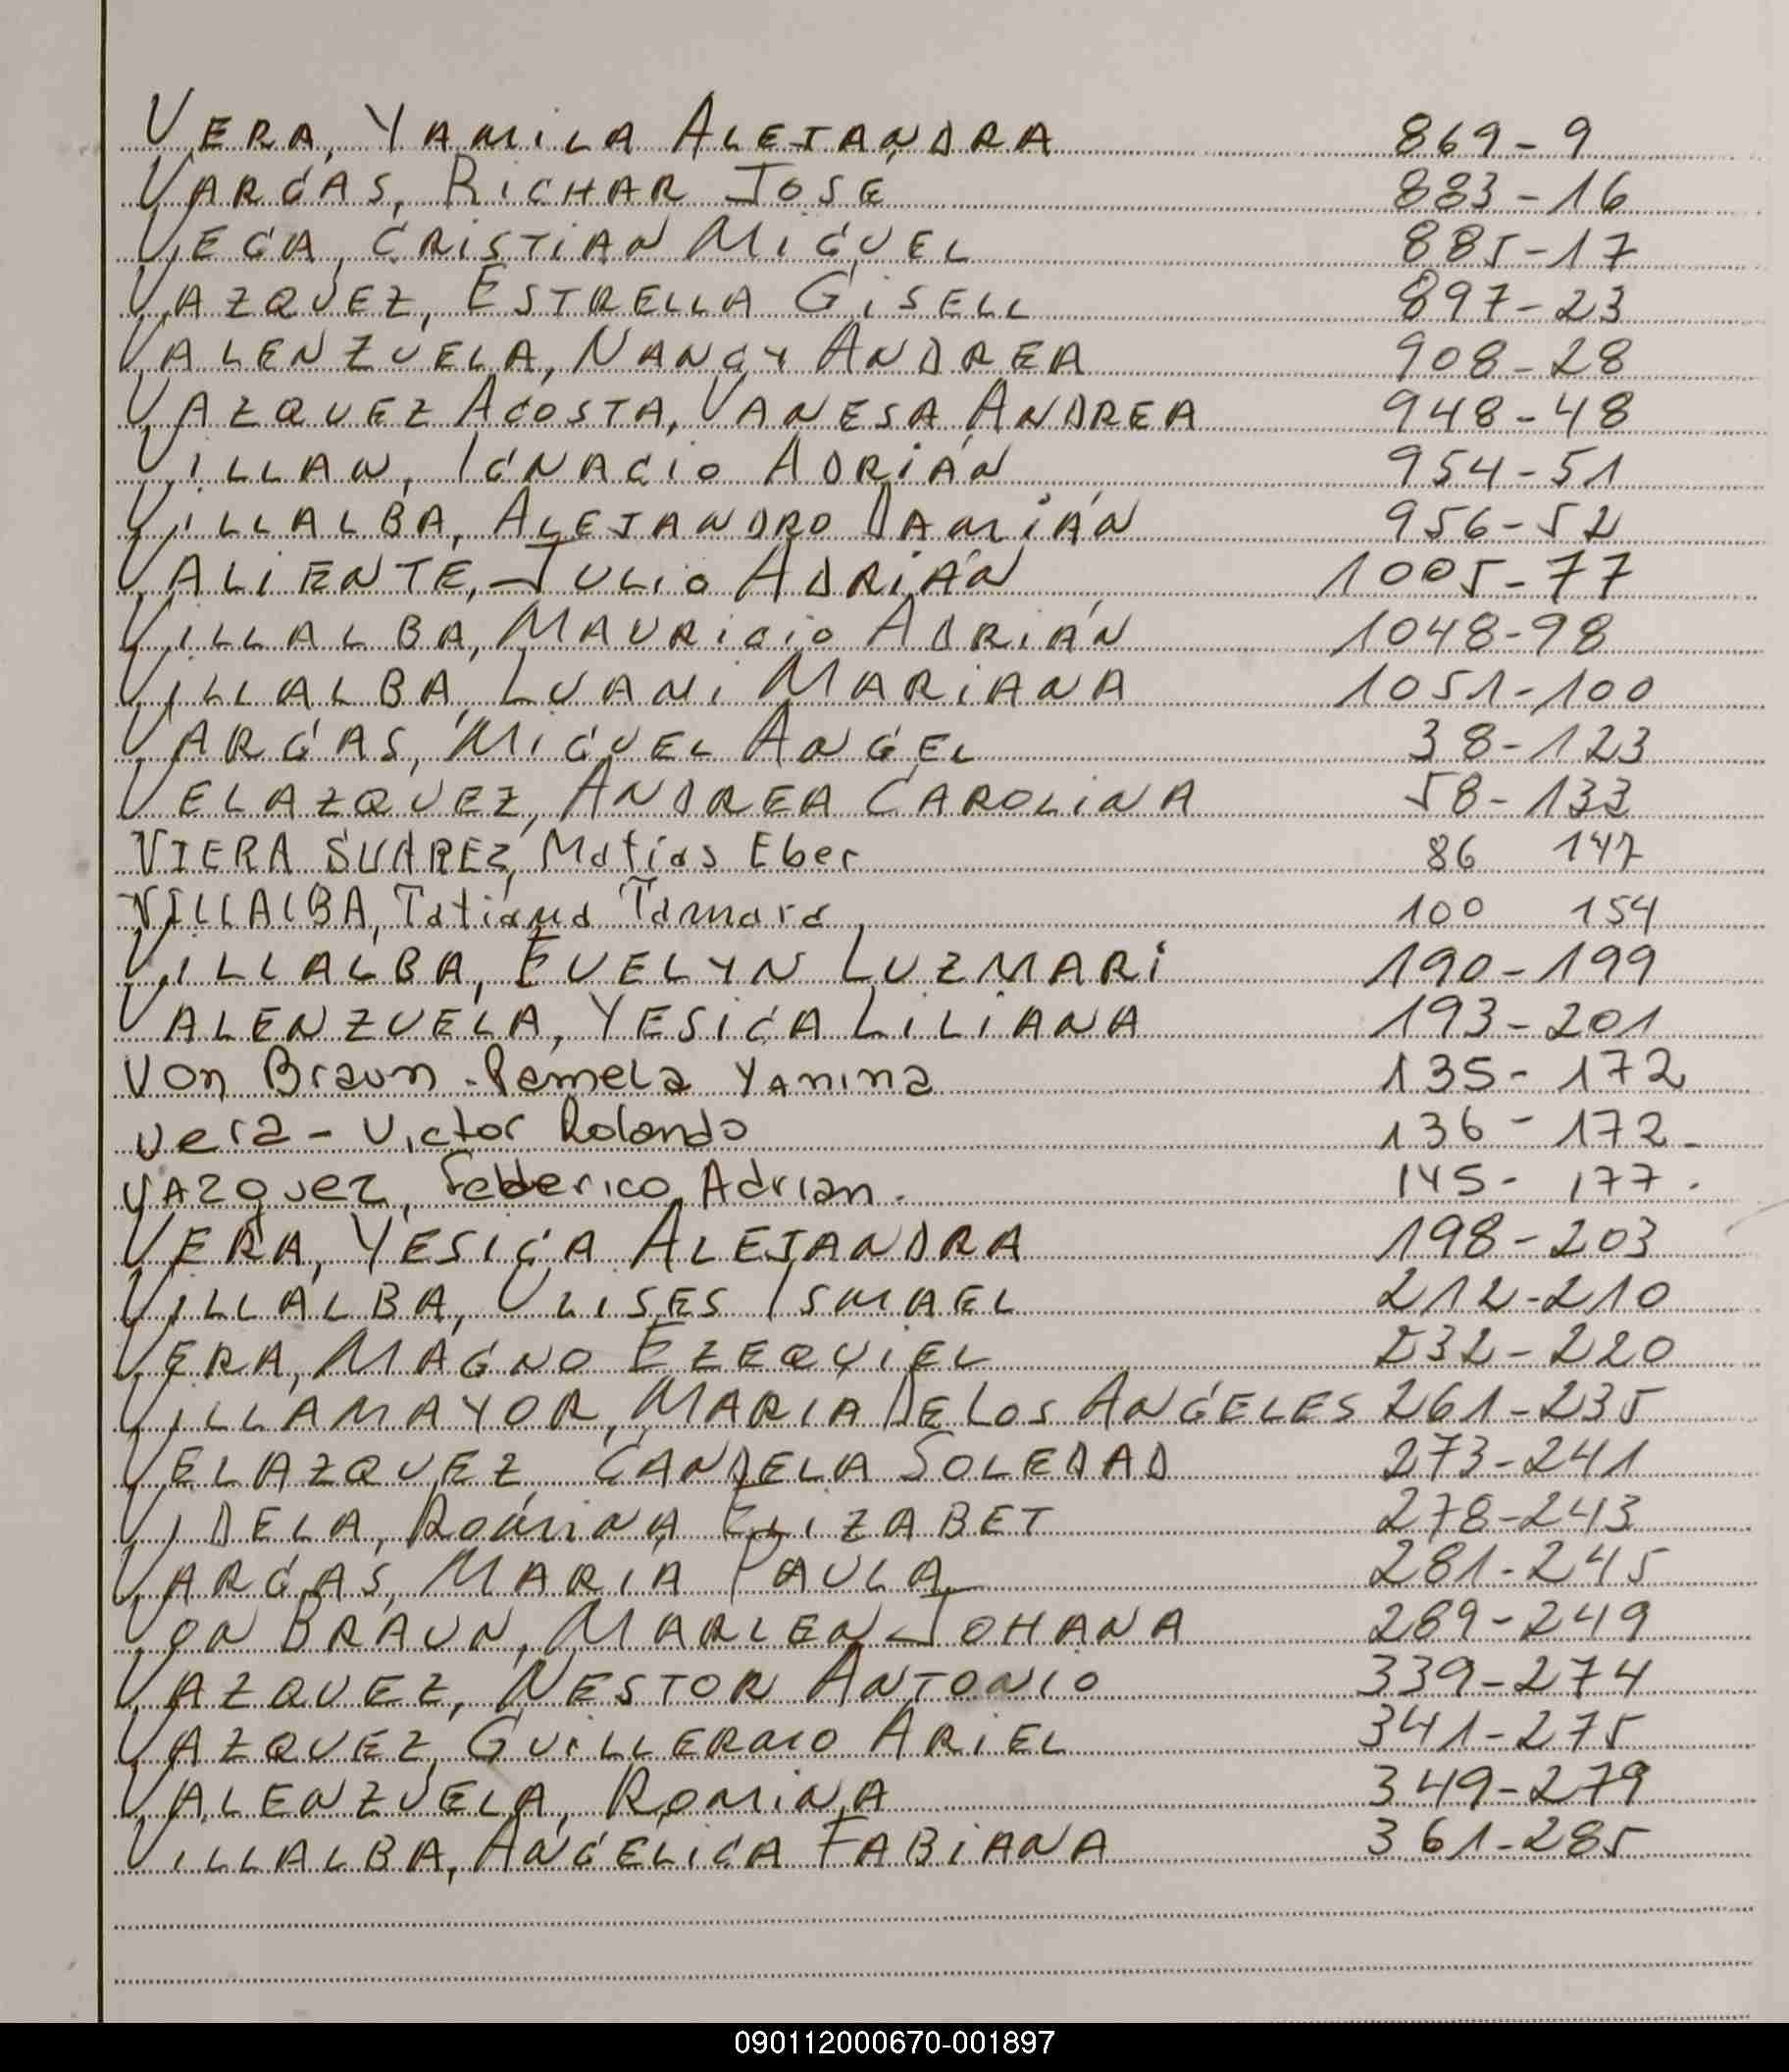 VERA, YAMILA ALEJANDRA 869-9
VARGAS, RICHAR JOSE 883-16
VEGA, CRISTIAN MIGUEL 885-17
VAZQUEZ, ESTRELLA GISELL 897-23
VALENZUELA, NANCY ANDREA 908-28
VAZQUEZ ACOSTA, VANESA ANDREA 948-48
VILLAN, IGNACIO ADRIÁN 954-51
VILLALBA, ALEJANDRO DAMIÁN 956-52
VALIENTE, JULIO ADRIÁN 1005-77
VILLALBA, MAURICIO ADRIÁN 1048-98
VILLALBA, LUANI MARIANA 1051-100
VARGAS, MIGUEL ANGEL 38-123
VELAZQUEZ, ANDREA CAROLINA 58-133
VIERA SUAREZ, Matias Eber 86 147
VILLALBA, Tatiana Tamara 100 154
VILLALBA, EVELYN LUZMARI 190-199
VALENZUELA, YESICA LILIANA 193-201
Von Braun - Pamela YAnina 135- 172
Vera - Victor Rolando 136 - 172-
VAzquez, Federico Adrian. 145- 177.
VERA, YESICA ALEJANDRA 198-203
VILLALBA, ULISES ISMAEL 212-210
VERA, MAGNO EZEQUIEL 232-220
VILLAMAYOR, MARIA DE LOS ANGELES 261-235
VELAZQUEZ, CANDELA SOLEDAD 273-241
VIDELA, ROMINA ELIZABET 278-243
VARGAS, MARIA PAULA 281-245
VON BRAUN, MARLEN JOHANA 289-249
VAZQUEZ, NESTOR ANTONIO 339-274
VAZQUEZ, GUILLERMO ARIEL 341-275
VALENZUELA, ROMINA 349-279
VILLALBA, ANGELICA FABIANA 361-285
090112000670-001897